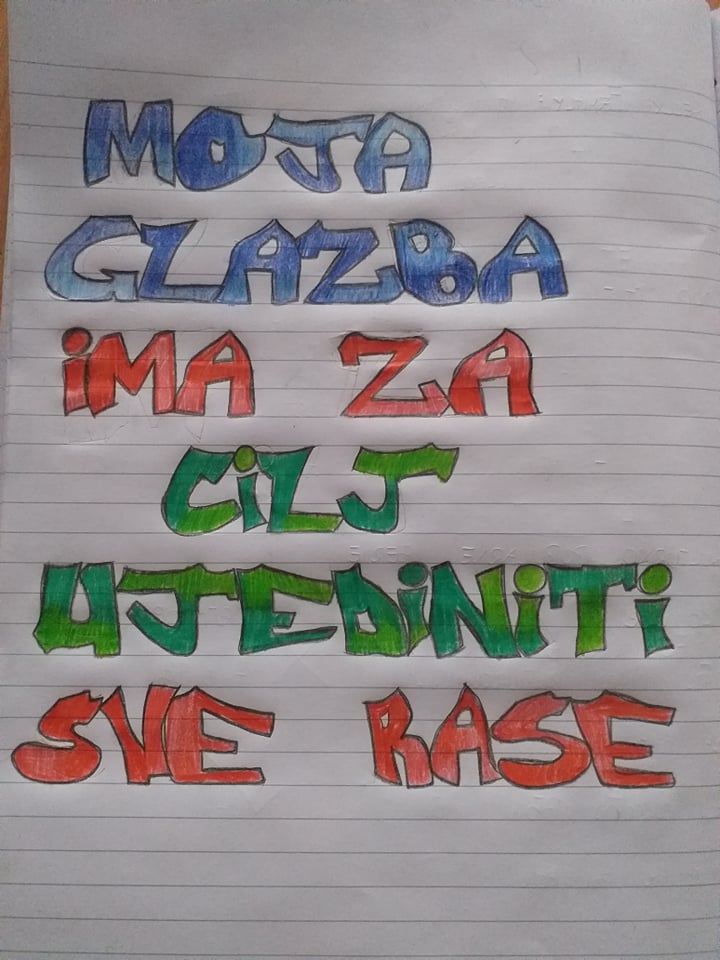 MOJA
GLAZBA
iMA ZA
CiLJ
UJEDiNiTi
SVE RASE